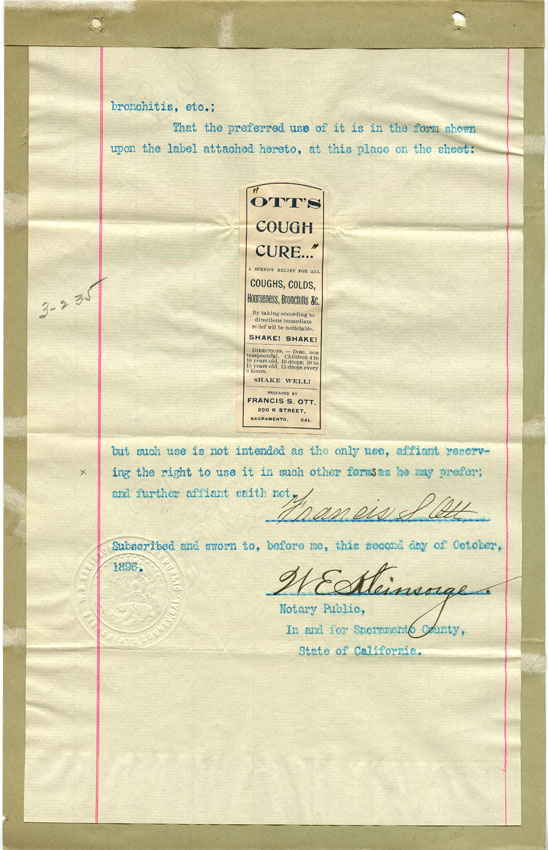 bronchitis, etc.;
That the preferred use of it is in the form shown
upon the label attached hereto, at this place on the sheet:
"OTT'S
COUGH
CURE..."
A SPEEDY RELIEF FOR ALL
COUGHS, COLDS,
Hoarseness, Bronchitis &c.
By taking according to
directions immediate
relief will be noticable.
SHAKE! SHAKE!
DIRECTIONS.—Dose, one
teaspoonful. Children 4 to
10 years old, 10 drops; 10 to
15 years old, 15 drops every
3 hours.
SHAKE WELL!
PREPARED BY
FRANCIS S. OTT.
200 K STREET,
SACRAMENTO, CAL.
3-235
but such use is not intended as the only use, affiant reserv-
x ing the right to use it in such other forms as he may prefer;
and further affiant saith not.
Francis S Ott
Subscribed and sworn to, before me, this second day of October,
1896.
W E Kleinsorge.
Notary Public,
In and for Sacramento County,
State of California.